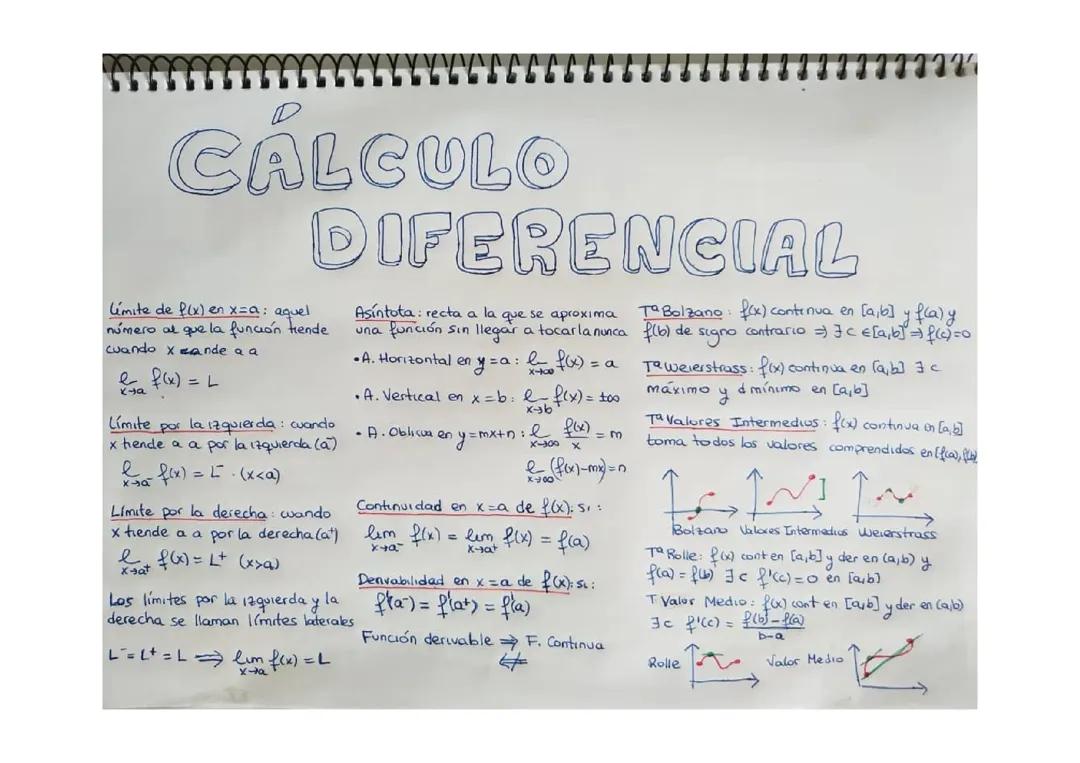 CÁLCULO
DIFERENCIAL
Límite de f(x) en x=a: aquel
número al que la función tiende
cuando x tiende a a
lim x→a f(x) = L
Límite por la izquierda: cuando
x tiende a a por la izquierda (a⁻)
lim x→a⁻ f(x) = L⁻ · (x<a)
Límite por la derecha: cuando
x tiende a a por la derecha (a⁺)
lim x→a⁺ f(x) = L⁺ (x>a)
Los límites por la izquierda y la
derecha se llaman límites laterales
L⁻ = L⁺ = L ⟹ lim x→a f(x) = L
Asíntota: recta a la que se aproxima
una función sin llegar a tocarla nunca
• A. Horizontal en y=a: lim x→∞ f(x) = a
• A. Vertical en x=b: lim x→b f(x) = ±∞
• A. Oblicua en y=mx+n: lim x→∞ f(x)/x = m
lim x→∞ (f(x)-mx) = n
Continuidad en x=a de f(x): si:
lim x→a⁻ f(x) = lim x→a⁺ f(x) = f(a)
Derivabilidad en x=a de f(x): si:
f'(a⁻) = f'(a⁺) = f'(a)
Función derivable ⇒ F. Continua
⇍
Tª Bolzano: f(x) continua en [a,b] y f(a) y
f(b) de signo contrario ⇒ ∃ c ∈ [a,b] ⇒ f(c)=0
Tª Weierstrass: f(x) continua en [a,b] ∃ c
máximo y d mínimo en [a,b]
Tª Valores Intermedios: f(x) continua en [a,b]
toma todos los valores comprendidos en [f(a), f(b)
Bolzano Valores Intermedios Weierstrass
Tª Rolle: f(x) cont en [a,b] y der en (a,b) y
f(a) = f(b) ∃ c f'(c)=0 en [a,b]
T Valor Medio: f(x) cont en [a,b] y der en (a,b)
∃ c f'(c) = f(b)-f(a)/b-a
Rolle Valor Medio